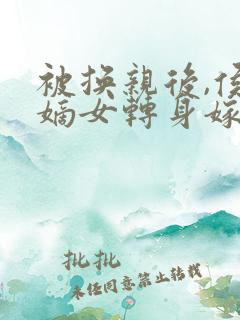 被换親後,侯
嫡女轉身嫁
批批
未经同意禁止转载